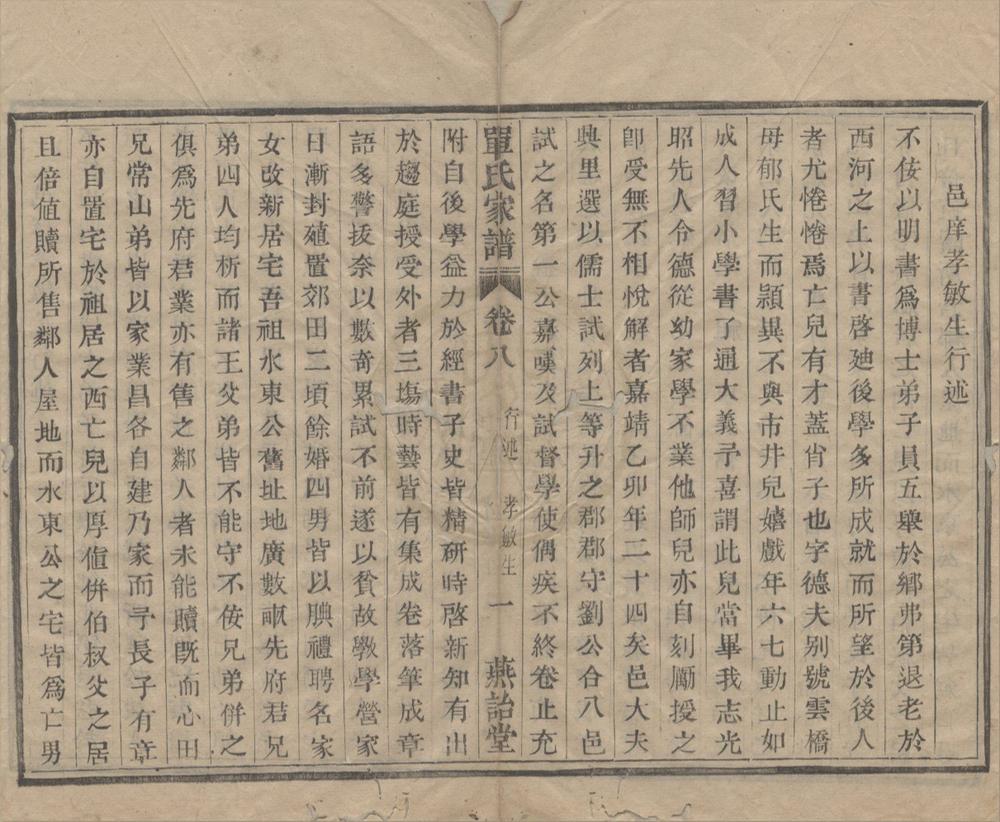 邑庠孝敏生行述
不佞以明書爲博士弟子員五舉於鄉弗第退老於
西河之上以書啓廸後學多所成就而所望於後人
者尤惓惓焉亡兒有才蓋肖子也字德夫别號雲橋
母郁氏生而頴異不與市井兒嬉戲年六七動止如
成人習小學書了通大義予喜謂此兒當畢我志光
昭先人令德從幼家學不業他師兒亦自刻勵授之
卽受無不相悅解者嘉靖乙卯年二十四矣邑大夫
興里選以儒士試列上等升之郡郡守劉公合八邑
試之名第一公嘉嘆及試督學使偶疾不終卷止充
附自後學益力於經書子史皆精研時啓新知有出
單氏家譜
卷八
行述
孝敏生
一
燕詒堂
於趨庭授受外者三塲時藝皆有集成卷落筆成章
語多警拔奈以數奇累試不前遂以貧故敎學營家
日漸封殖置郊田二頃餘婚四男皆以腆禮聘名家
女改新居宅吾祖水東公舊址地廣數畝先府君兄
弟四人均析而諸王父弟皆不能守不佞兄弟併之
俱爲先府君業亦有售之鄰人者未能贖旣而心田
兄常山弟皆以家業昌各自建乃家而予長子有章
亦自置宅於祖居之西亡兒以厚値併伯叔父之居
且倍値贖所售鄰人屋地而水東公之宅皆爲亡男